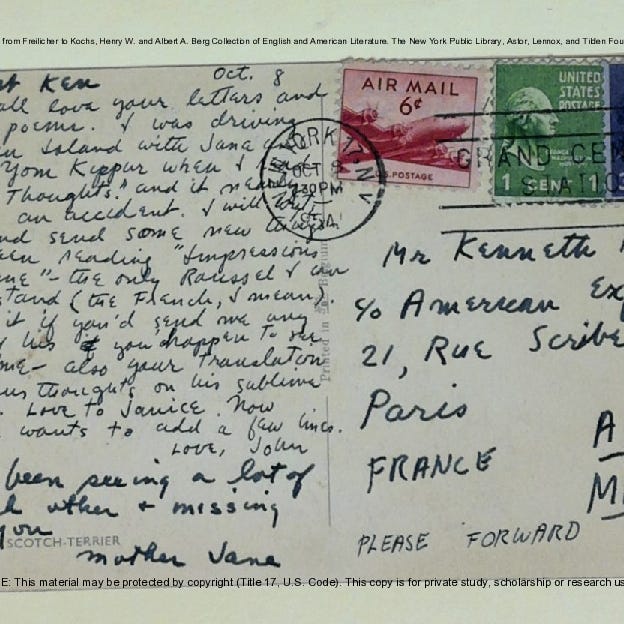 from Freilicher to Kochs, Henry W. and Albert A. Berg Collection of English and American Literature. The New York Public Library, Astor, Lennox, and Tilden Fou
Ken Oct. 8
all love your letters and
poems. I was driving
Island with Jane
Yom Kippur when I
Thoughts." and it
an accident. I will
send some new
reading "Impressions
- the only Roussel I can
(the French, I mean).
it if you'd send me any
his if you happen to see
- also your translation
thoughts on his sublime
Love to Janice. Now
wants to add a few lines.
Love, John
been seeing a lot of
other + missing
you
SCOTCH-TERRIER
mother Jane
Printed in Belgium
AIR MAIL
6¢
U.S. POSTAGE
UNITED
STATES
POSTAGE
1 CENT 1
YORK 17. N.Y
OCT 8
730PM
1954
GRAND CEN
STATIO
Mr Kenneth
c/o American Exp
21, Rue Scribe
Paris
FRANCE
A
M
PLEASE FORWARD
E: This material may be protected by copyright (Title 17, U.S. Code). This copy is for private study, scholarship or research us